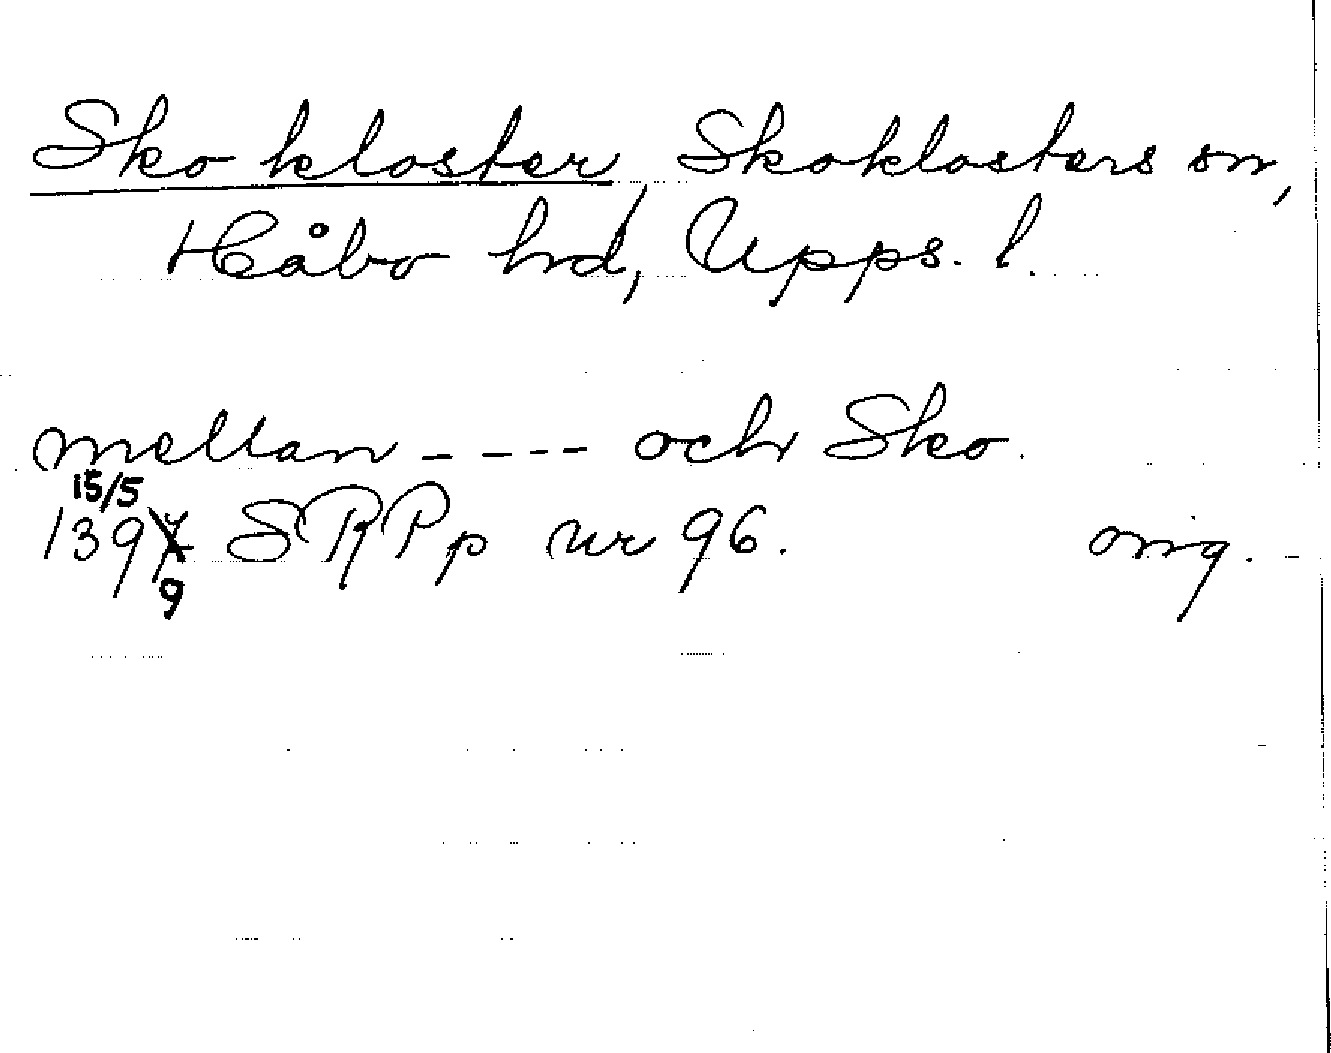 Skokloster, Skoklosters sn,
Håbo hd, Upps. l.
mellan ---- och Sko.
15/5
1397 SRPp nr 96. orig.
9